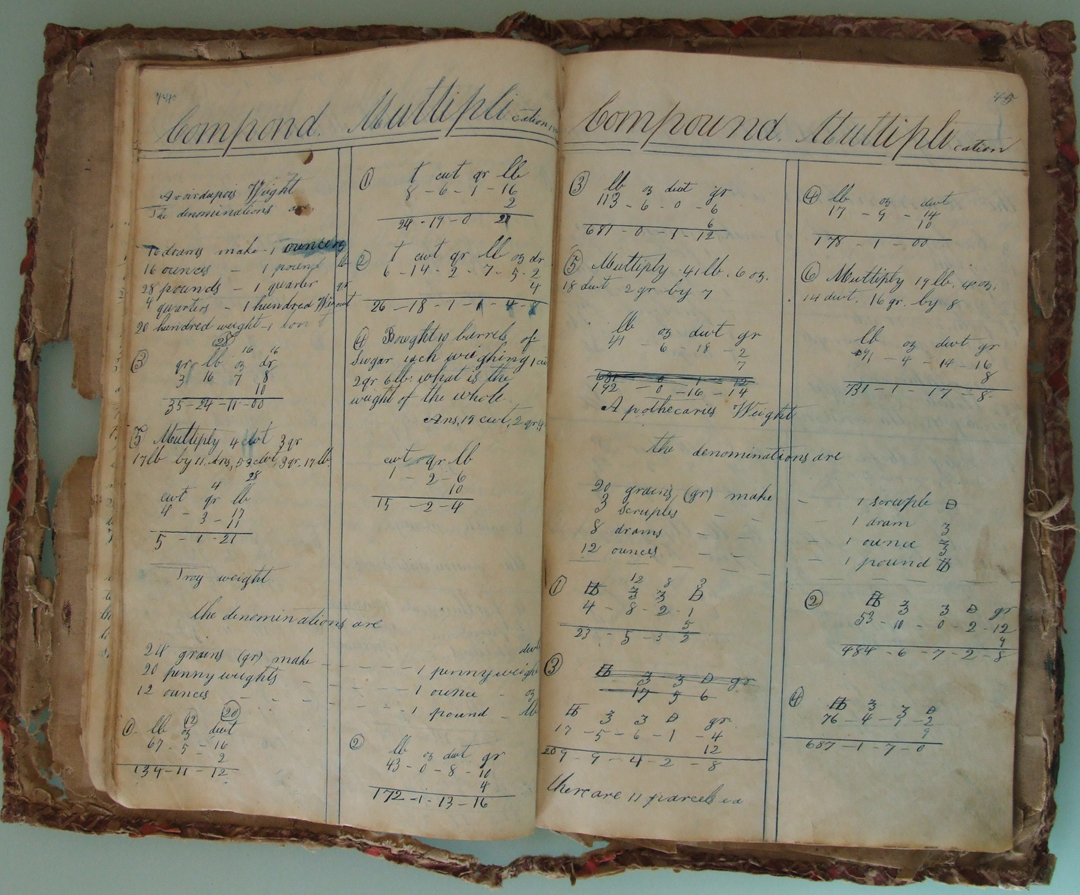 44
Compond. Multiplication
Avoirdapois Weight
The denominations are
make - 1 ounce
16 ounces - 1 pound lb
28 pounds - 1 quarter qr
4 quarters - 1 hundred Weight
20 hundred weight - 1 ton t
28 16 16
③ qr lb oz dr
3 16 7 8
10
35 - 24 - 11 - 00
5 Multiply 4 cwt 3 qr
17 lb by 11. Ans, 53 cwt, 3 qr. 17 lb.
4 28
cwt qr lb
4 - 3 - 17
11
5 - 1 - 21
Troy weight
the denominations are
24 grains (gr) make - - - - - 1 pennyweight dwt
20 pennyweights - - - - 1 ounce - oz
12 ounces - - - - - 1 pound - lb
12 20
① lb oz dwt
67 - 5 - 16
2
134 - 11 - 12
① t cwt qr lb
8 - 6 - 1 - 16
2
24 - 19 - 0
② t cwt qr lb oz dr
6 - 14 - 2 - 7 - 5 - 2
4
26 - 18 - 1 - 1 - 4 - 8
④ Bought 10 barrels of
Sugar each weighing 1 cwt
2 qr 6 lb: what is the
weight of the whole
Ans, 15 cwt, 2 qr 4
cwt qr lb
1 - 2 - 6
10
15 - 2 - 4
② lb oz dwt gr
43 - 0 - 8 - 10
4
172 - 1 - 13 - 16
Compound. Multiplication
③ lb oz dwt gr
113 - 6 - 0 - 6
6
681 - 0 - 1 - 12
⑤ Multiply 41 lb. 6 oz.
18 dwt 2 gr by 7
lb oz dwt gr
41 - 6 - 18 - 2
7
681 - 0 - 1 - 12
192 - 0 - 16 - 14
④ lb oz dwt
17 - 9 - 14
10
178 - 1 - 00
⑥ Multiply 19 lb. 4 oz.
14 dwt. 16 gr. by 8
lb oz dwt gr
91 - 4 - 14 - 16
8
731 - 1 - 17 - 8
Apothecaries Weight
the denominations are
20 grains (gr) make - 1 scruple ℈
3 scruples - - - 1 dram ʒ
8 drams - - - 1 ounce ℥
12 ounces - - - 1 pound ℔
12 8 3
① ℔ ℥ ʒ ℈
4 - 8 - 2 - 1
5
23 - 5 - 3 2
② ℔ ℥ ʒ ℈ gr
53 - 10 - 0 - 2 - 12
9
484 - 6 - 7 - 2 - 8
③ ℔ ℥ ʒ ℈ gr
17 5 6
℔ ℥ ʒ ℈ gr
17 - 5 - 6 - 1 - 4
12
209 - 9 - 4 - 2 - 8
④ ℔ ℥ ʒ ℈
76 - 4 - 7 - 2
9
687 - 1 - 7 - 0
there are 11 parcels